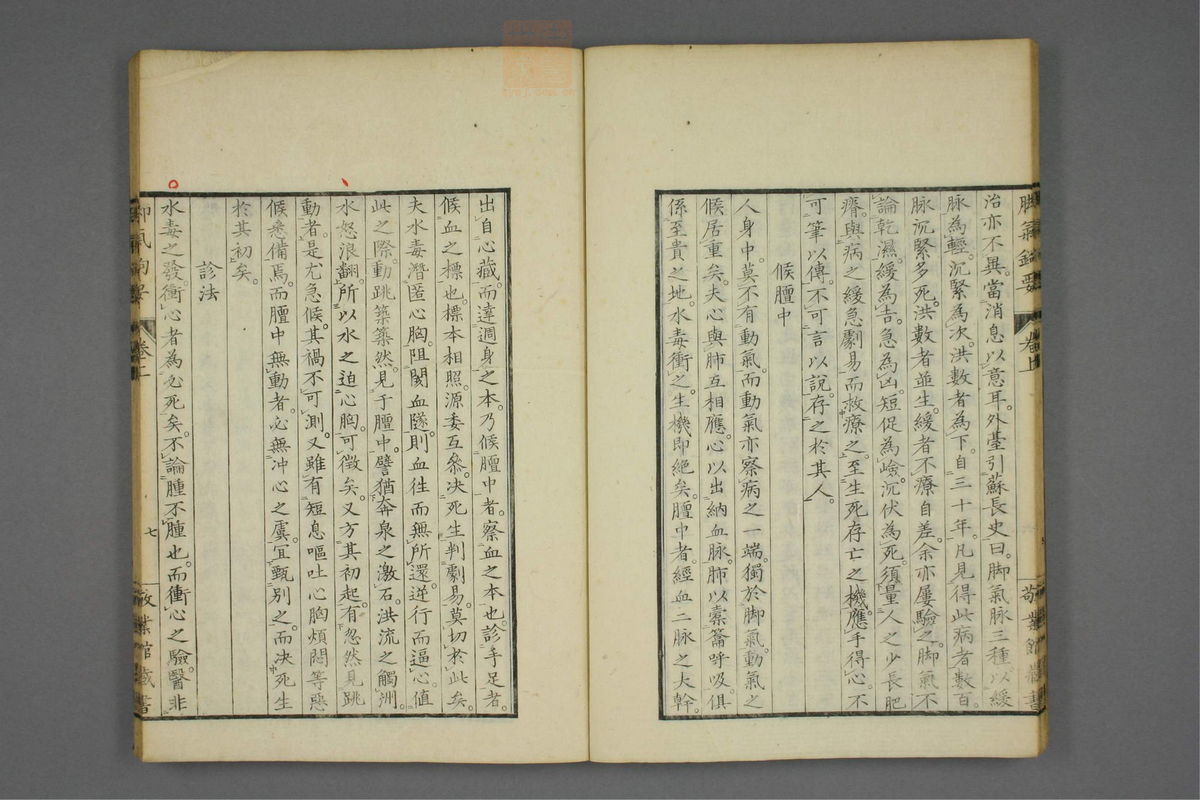 治亦不異。當消息以意耳。外臺引蘇長史曰。脚氣脉三種。以緩
脉為輕。沉緊為次。洪數者為下。自三十年。凡見得此病者數百。
脉沉緊多死。洪數者並生。緩者不療自差。余亦屢驗之。脚氣不
論乾濕。緩為吉。急為凶。短促為嶮。沉伏為死。須量人之少長肥
瘠。與病之緩急劇易而救療之。至生死存亡之機。應手得心。不
可筆以傳。不可言以說。存之於其人。
候膻中
人身中。莫不有動氣。而動氣亦察病之一端。獨於脚氣。動氣之
候居重矣。夫心與肺互相應。心以出納血脉。肺以橐籥呼吸。俱
係至貴之地。水毒衝之。生機即絕矣。膻中者。經血二脉之大幹。
出自心藏。而達週身之本。乃候膻中者。察血之本也。診手足者。
候血之標也。標本相照。源委互參。決死生。判劇易。莫切於此矣。
夫水毒潛匿心胸。阻閡血隧。則血往而無所還。逆行而逼心。値
此之際。動跳築築然。見于膻中。譬猶奔泉之激石。洪流之觸洲。
水怒浪翻。所以水之迫心胸。可徵矣。又方其初起。有忽然見跳
動者。是尤急候。其禍不可測。又雖有短息嘔吐心胸煩悶等惡
候悉備焉。而膻中無動者。必無冲心之虞。宜甄別之。而決死生
於其初矣。
診法
水毒之發。衝心者為必死矣。不論腫不腫也。而衝心之驗。醫非
卷二
七